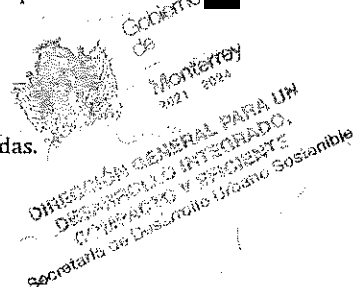 Gobierno
de
Monterrey
2021 2024
das.
DIRECCIÓN GENERAL PARA UN
DESARROLLO INTEGRADO,
COMPACTO Y EFICIENTE
Secretaría de Desarrollo Urbano Sostenible